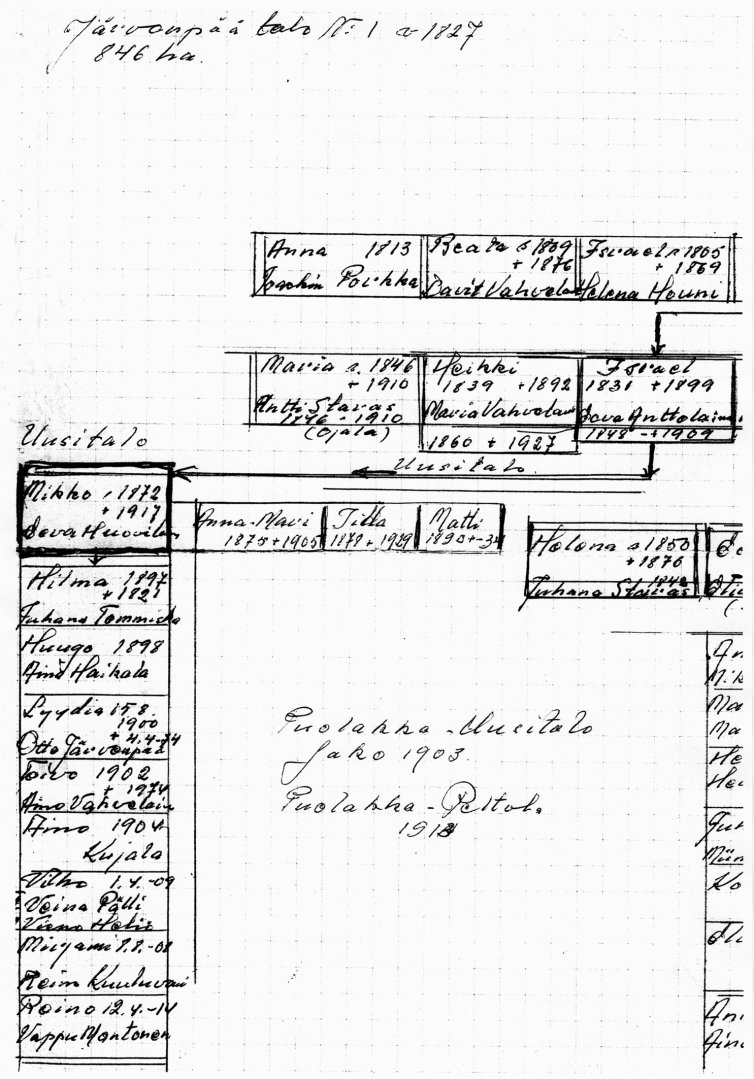 Järvenpää talo N:1 v 1827
846 ha.
Anna 1813
Joachim Porkka
Beata s 1809
+ 1876
Davit Vahvelai
Israel s 1805
+ 1869
Helena Houni
Maria s. 1846
+ 1910
Antti Staras
1846 - 1910
(Ojala)
Heikki
1839 +1892
Maria Vahvelain
1860 + 1927
Israel
1831 +1899
Eeva Anttolainen
1848 - +1909
Uusitalo
Uusitalo.
Mikko s 1872
+ 1917
Eeva Huovila
Anna-Mari
1875+1905
Tilta
1878+1929
Matti
1890+-34
Helena s 1850
+1876
Juhana Staras
1842
Hilma 1897
+ 1921
Juhana Tommiska
Huugo 1898
Aino Haikala
Lyydia 15.8.
1900
+ 4.4-74
Otto Järvenpää
Toivo 1902
+ 1974
Aino Vahvelain
Aino 1904
Kujala
Vilho 1.4.-09
Veina Pälli
Mirjami 8.8.-08
Reino 12.4.-14
Vappu Mantonen
Puolakka - Uusitalo
jako 1903.
Puolakka - Peltola
An
Mik
Ma
Ma
He
Hei
Juh
Miin
Ko
An
Aino